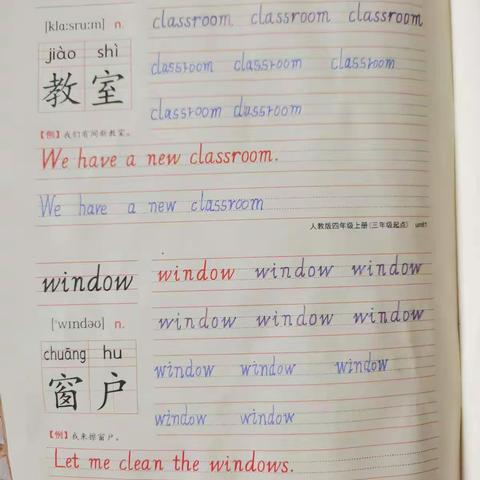 [kla:sru:m] n. classroom classroom classroom
jiào shì classroom classroom classroom
教室 classroom classroom
【例】我们有间新教室。
We have a new classroom.
We have a new classroom
人教版四年级上册(三年级起点) unit1
window window window window
['wɪndəʊ] n. window window window
chuāng hu window window window
窗户 window window
【例】我来擦窗户。
Let me clean the windows.